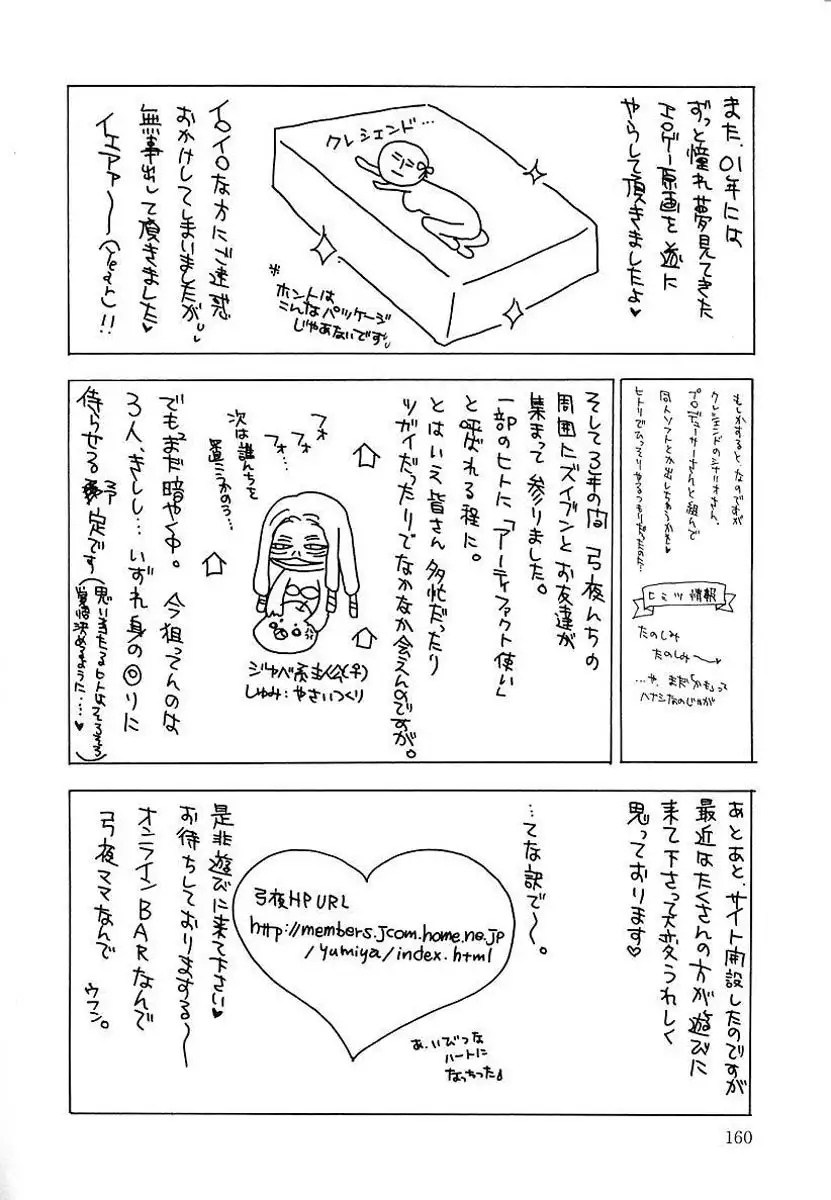 また、01年には
ずっと憧れ夢見てきた
エロゲー原画を遂に
やらして頂きましたよ♥
クレシェンド…
※ホントは
こんなパッケージ
じゃあないです。
イロイロな方にご迷惑
おかけしてしまいましたが、
無事出して頂きました♥
イェアァ〜〜(Yeah)!!
もしかすると、なのですが
クレシェンドのシナリオさん、
プロデューサーさんと組んで
同人ソフトとか出しちゃうかも♥
ヒトリでひっそりやるつもりだったのに…
ヒミツ情報
たのしみ
たのしみ〜
…や、まだ「かも」って
ハナシなのじゃが
そして3年の間 弓夜んちの
周囲にズイブンとお友達が
集まって参りました。
一部のヒトに「アーティファクト使い」
と呼ばれる程に。
とはいえ皆さん多忙だったり
ツガイだったりでなかなか会えんのですが。
フォ
フォ…
フォ…
次は誰んちを
置こうかのう…
ジャバ系主人公(♀)
しゅみ:やさいつくり
でもまだ暗やく中。今狙ってんのは
3人、きしし…いずれ身の回りに
待らせる予定です
(思い当たるヒトは
覚悟決めるように……♥)
あとあと、サイト開設したのですが
最近はたくさんの方が遊びに
来て下さって大変うれしく
思っております♥
…てな訳で〜。
弓夜HP URL
http://members.jcom.home.ne.jp
/yumiya/index.html
あ、いびつな
ハートに
なっちった♪
是非遊びに来て下さい♥
お待ちしておりまする〜
オンラインBARなんで
弓夜ママなんで
ウフン。
160